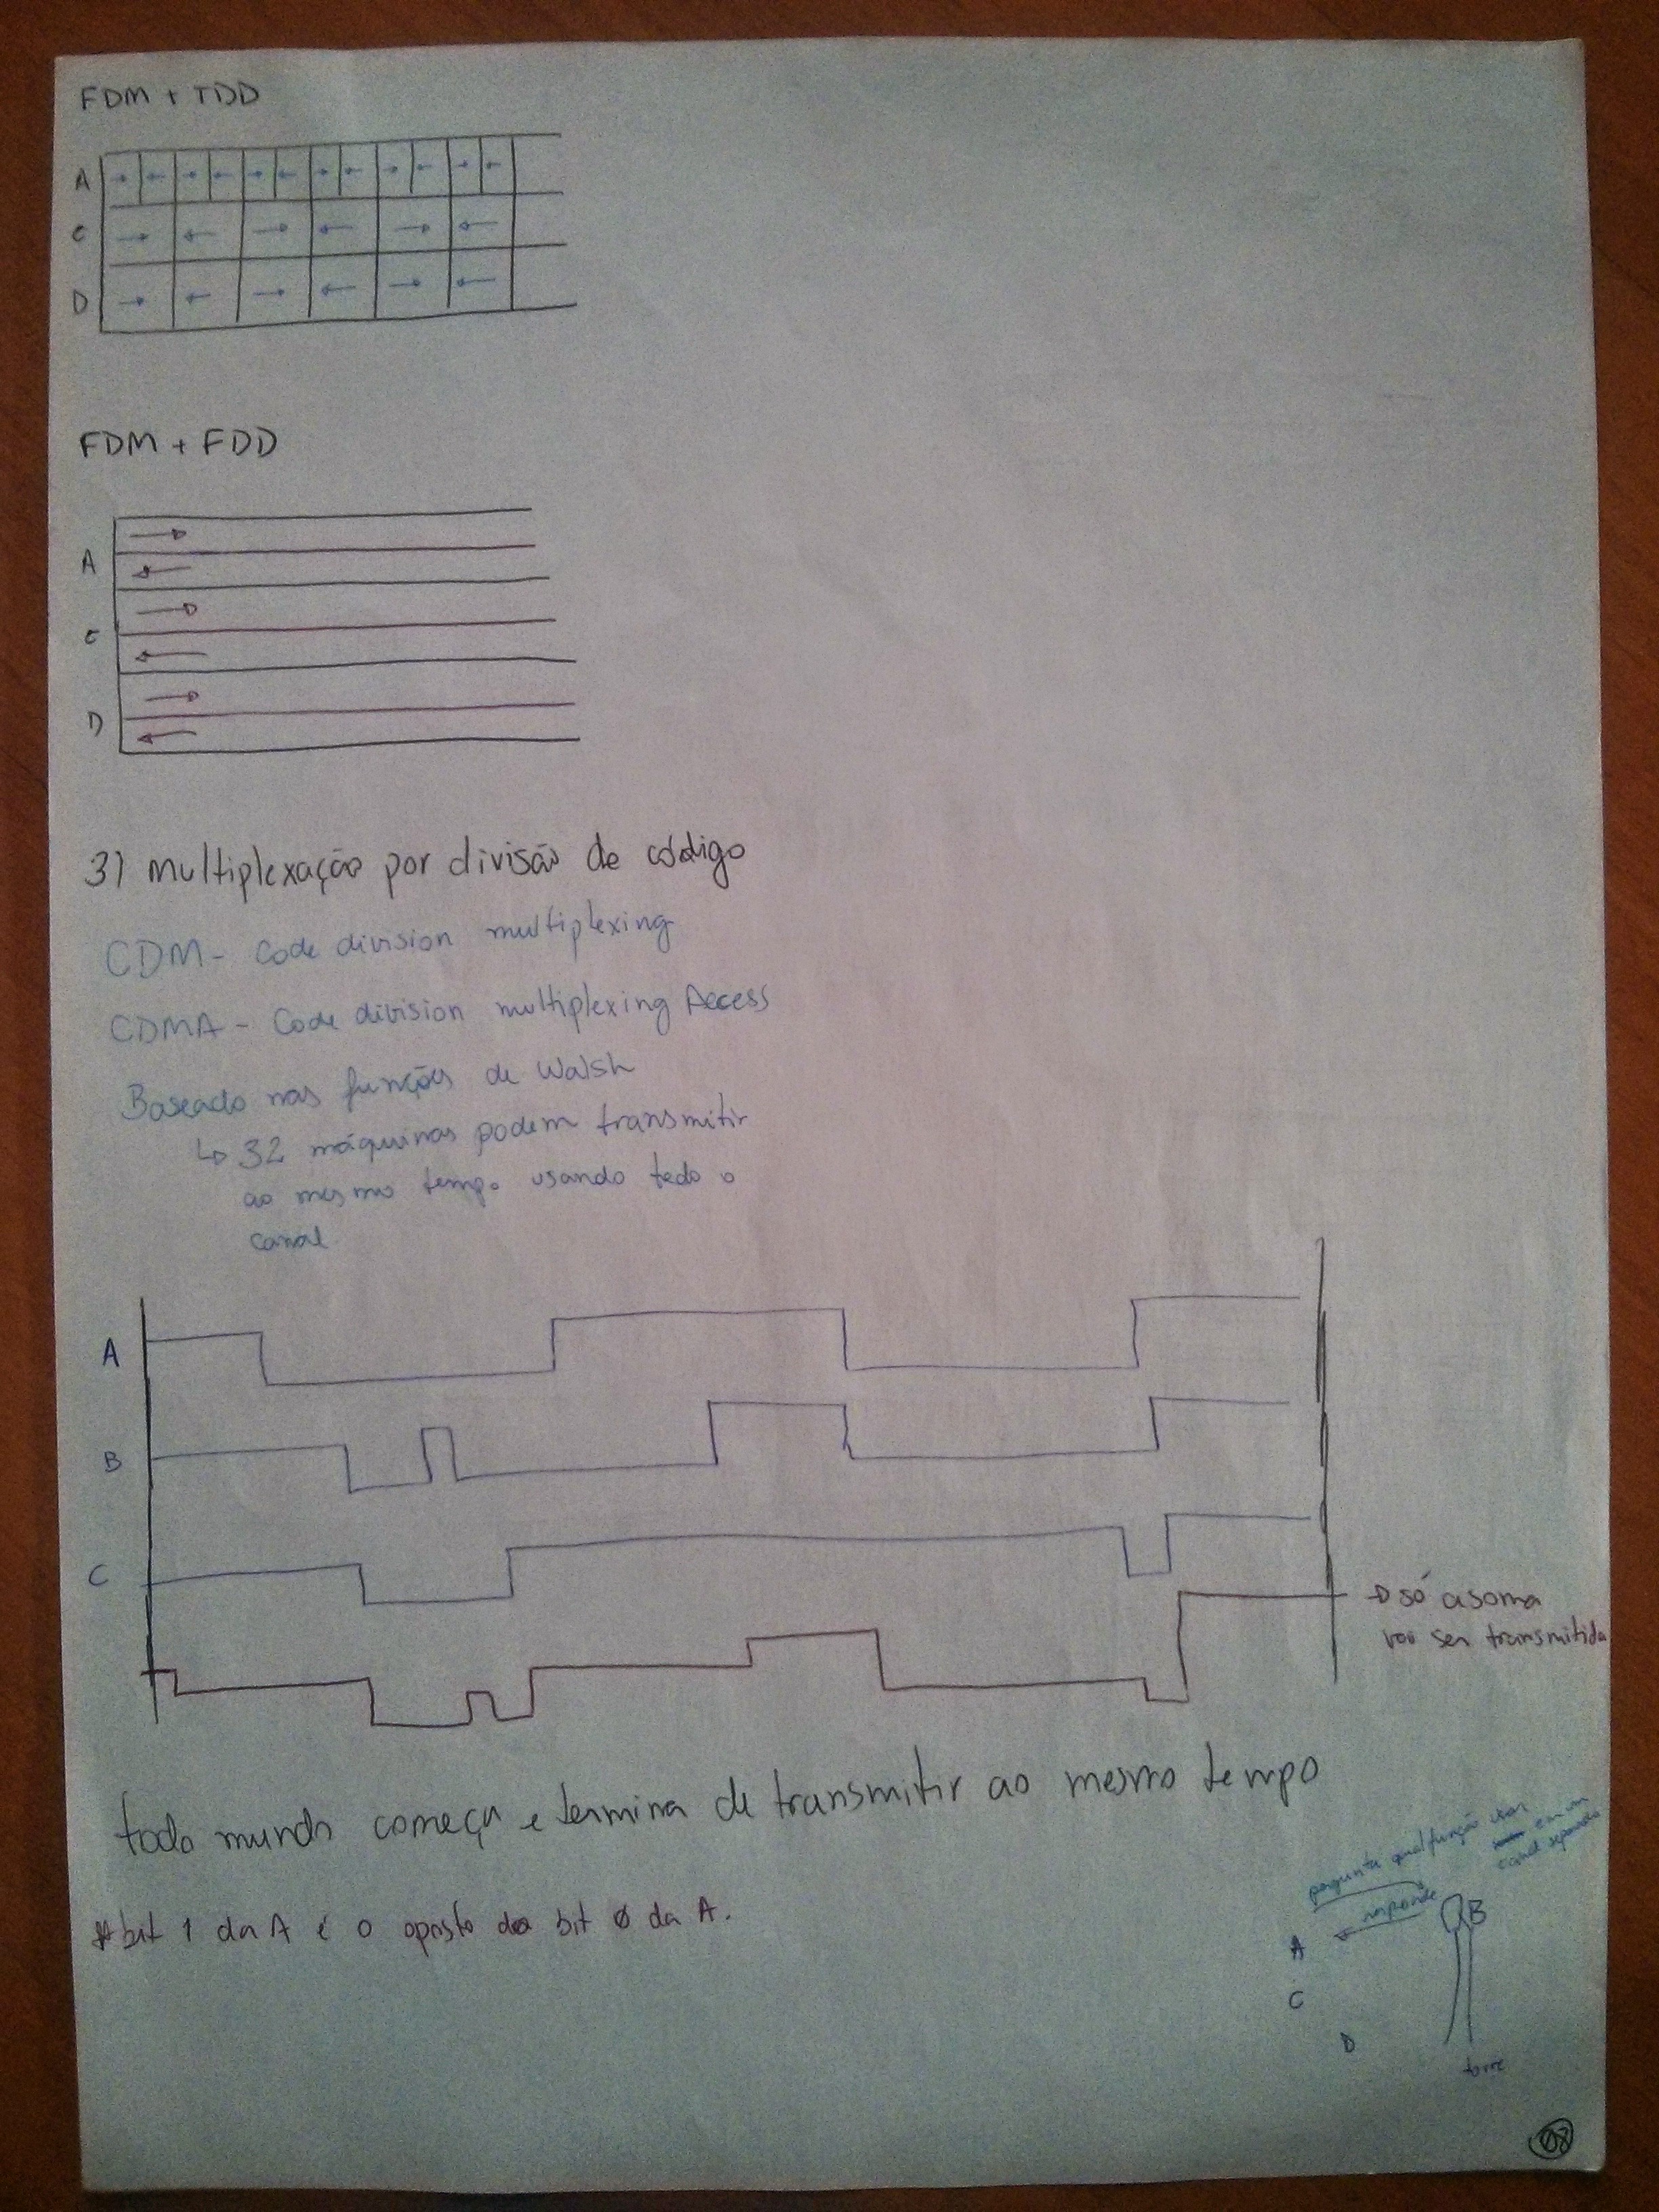 FDM + TDD
A
C
D
FDM + FDD
A
C
D
3) Multiplexação por divisão de código
CDM - Code division multiplexing
CDMA - Code division multiplexing Access
Baseado nas funções de Walsh
↳ 32 máquinas podem transmitir
ao mesmo tempo usando todo o
canal
A
B
C
→ só a soma
vai ser transmitida
todo mundo começa e termina de transmitir ao mesmo tempo
* bit 1 da A é o oposto do bit 0 da A.
pergunta qual função usar
em um
canal separado
responde
B
A
C
D
torre
08